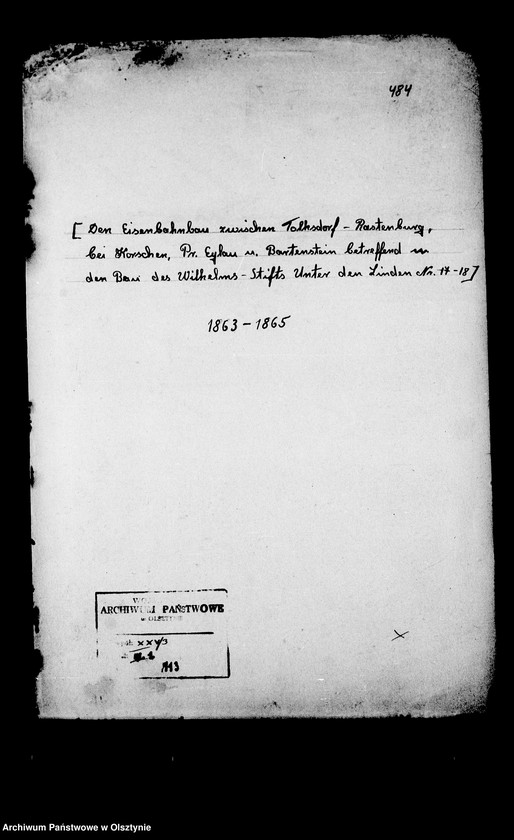 484
[ Den Eisenbahnbau zwischen Tolksdorf - Rastenburg,
bei Korschen, Pr. Eylau u. Bartenstein betreffend u
den Bau des Wilhelms-Stifts Unter den Linden Nr. 17-18 ]
1863 - 1865
ARCHIWUM PAŃSTWOWE
w OLSZTYNIE
XXV/3
1113
Archiwum Państwowe w Olsztynie